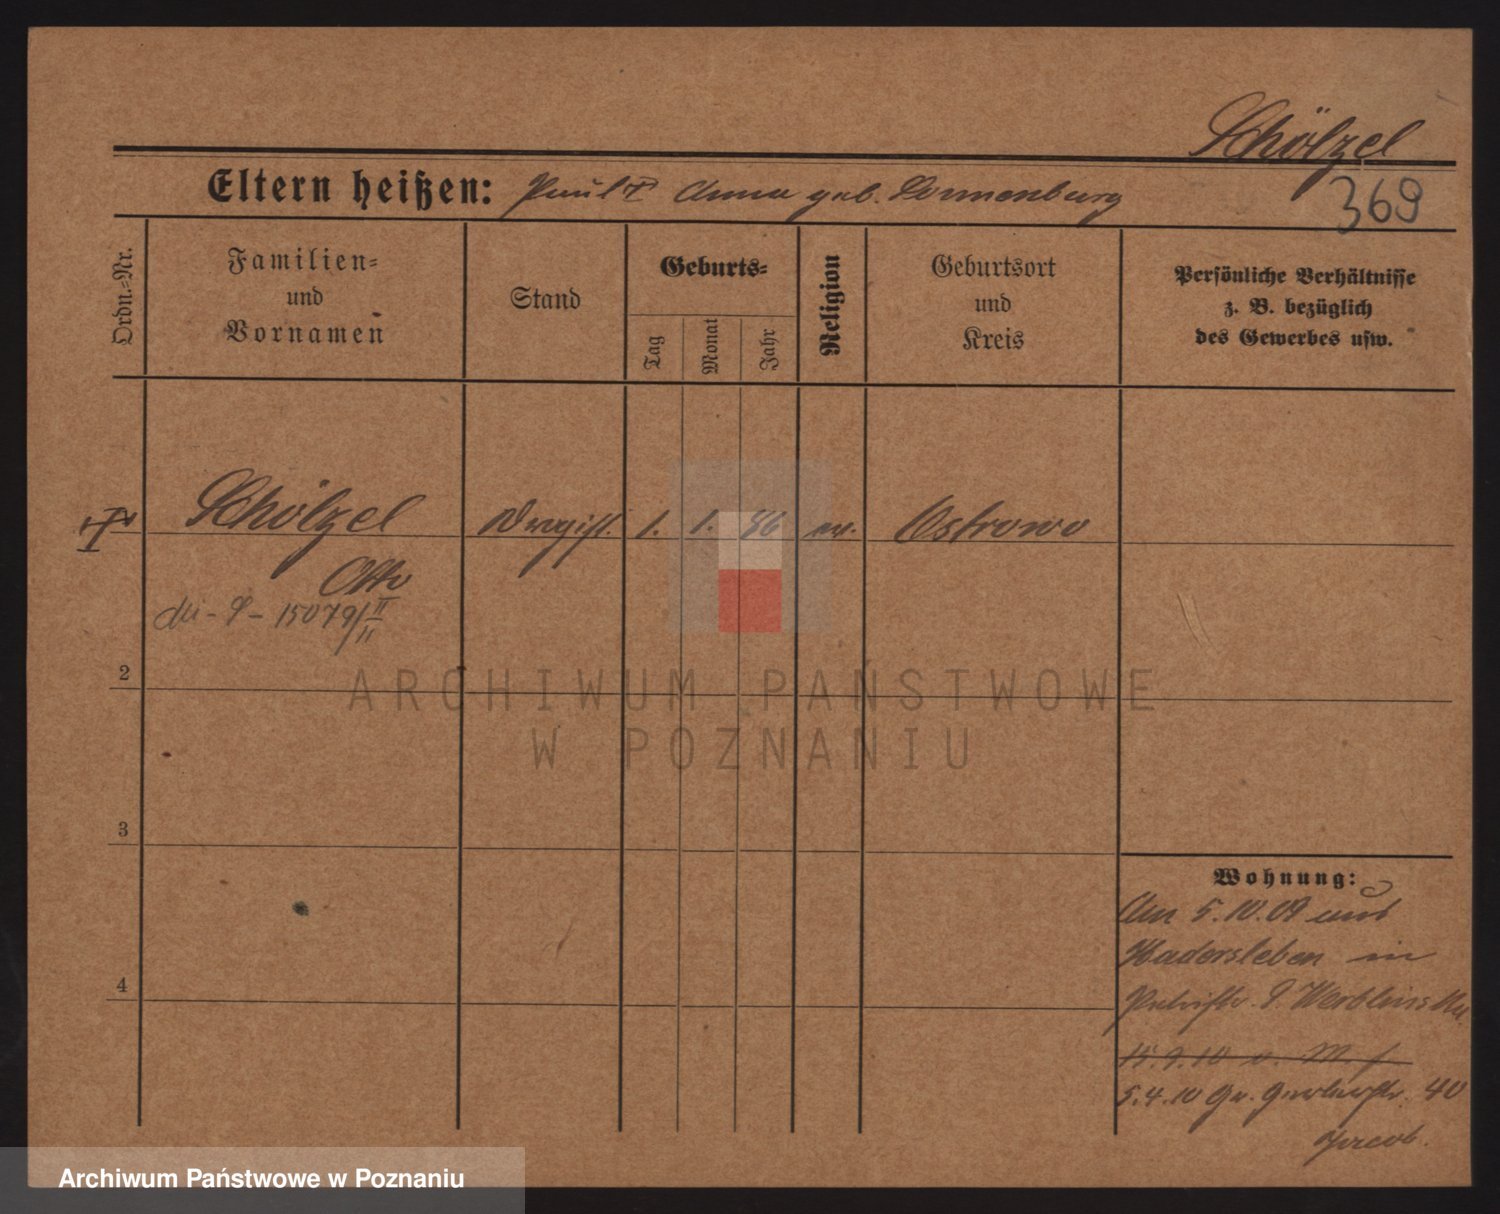 Schölzel
Eltern heißen: Paul † Anna geb. Sonnenburg
369
Ordn.-Nr.
Familien-
und
Vornamen
Stand
Geburts-
Tag
Monat
Jahr
Religion
Geburtsort
und
Kreis
Persönliche Verhältnisse
z. B. bezüglich
des Gewerbes usw.
Schölzel Drogist. 1. 1. 86 ev. Ostrowo
Otto
15079/II
2
3
4
ARCHIWUM PAŃSTWOWE
W POZNANIU
Wohnung:
Am 5.10.09 aus
Hadersleben in
Petristr. 9. Werblinski
5.4.10 Gr. Gerberstr. 40
Jacob.
Archiwum Państwowe w Poznaniu